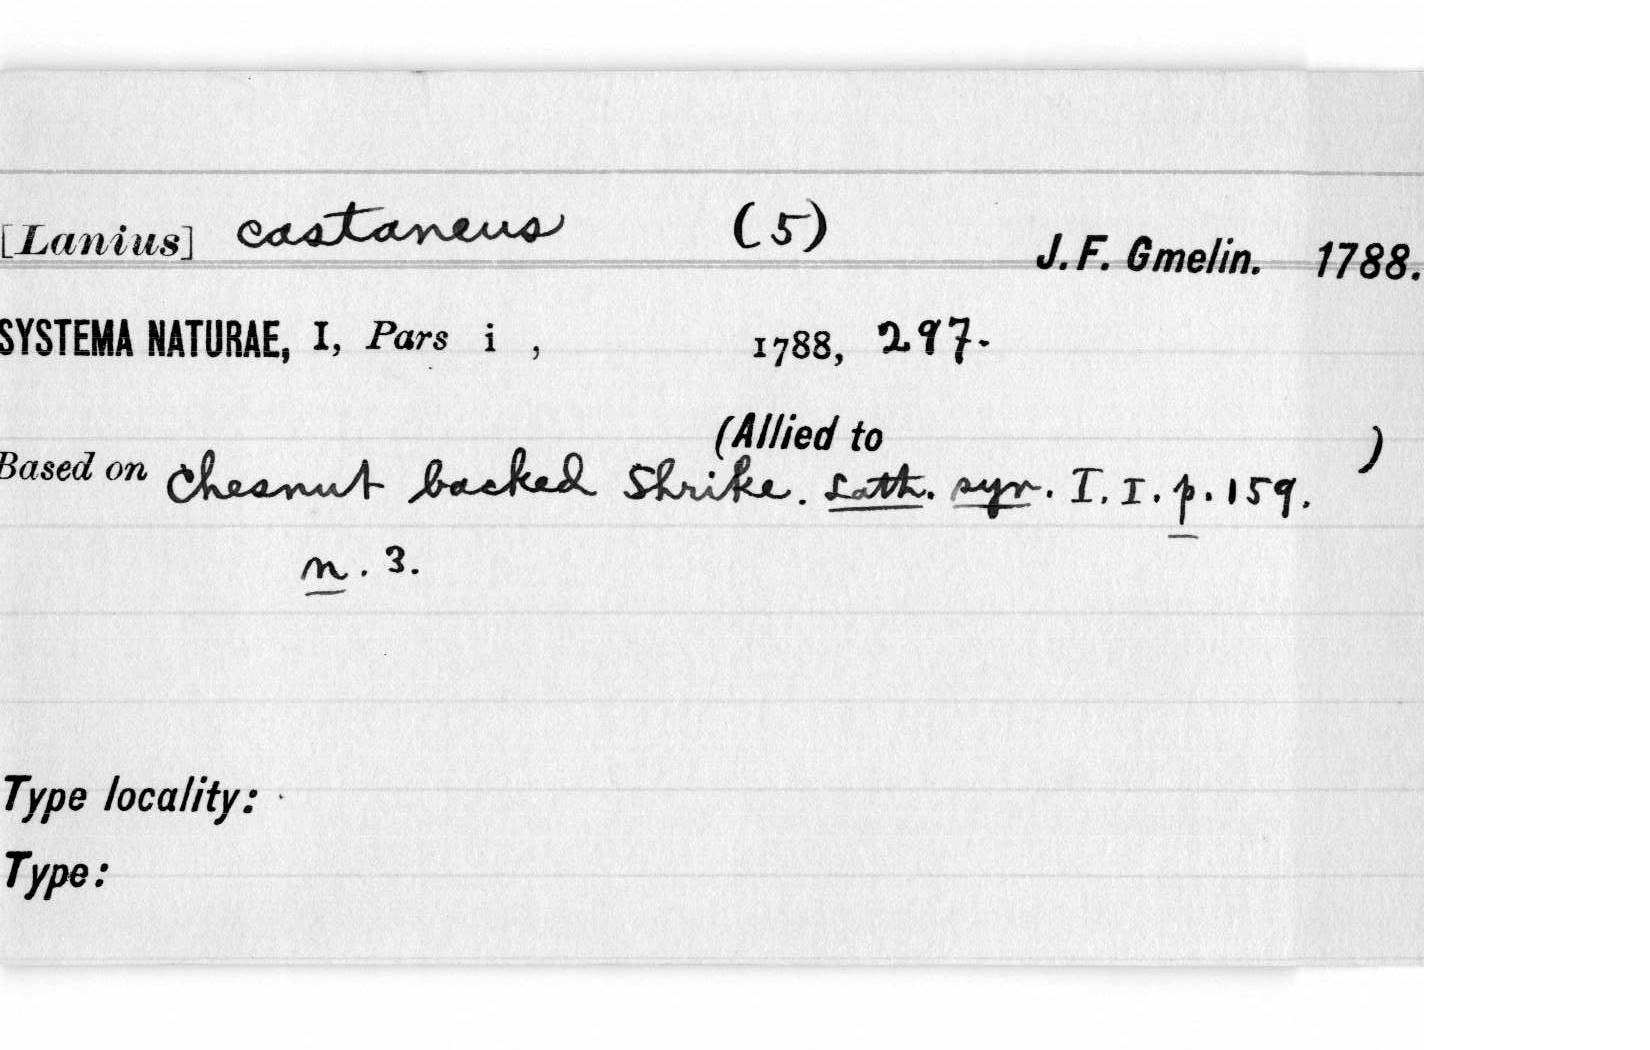 [Lanius] castaneus (5) J. F. Gmelin. 1788.
SYSTEMA NATURAE, I, Pars i , 1788, 297.
(Allied to )
Based on Chesnut backed Shrike. Lath. syn. I. I. p. 159.
n. 3.
Type locality:
Type: